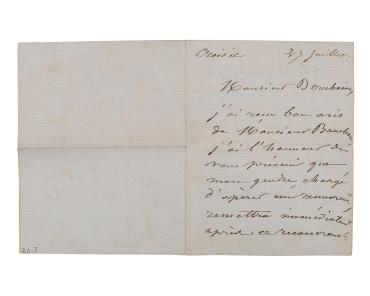 Croisic 27 juillet
Monsieur
j'ai reçu bon avis
de Monsieur
j'ai l'honneur de
vous prévenir que
mon gendre, chargé
d'opérer un recouvrement,
remettra immédiatement
après ce recouvrement